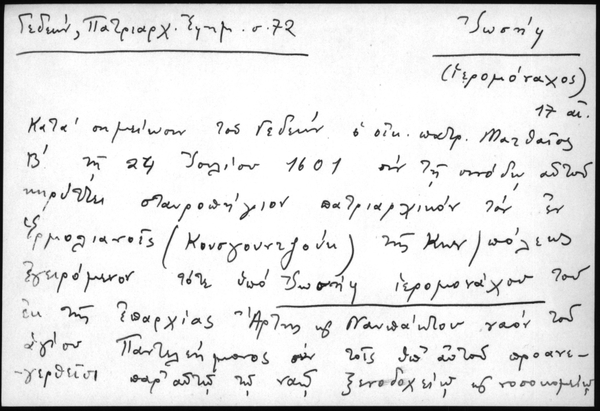 Γεδεών, Πατριαρχ. Ἐφημ. σ. 72
Ἰωσήφ
(ἱερομόναχος)
17 αἰ.
Κατά σημείωσιν τοῦ Γεδεών ὁ οἰκ. πατρ. Ματθαῖος
Β' τῇ 24 Ἰουλίου 1601 σύν τῇ συνόδῳ αὐτοῦ
κηρύττει σταυροπήγιον πατριαρχικόν τόν ἐν
Ἑρμολιανοῖς (Κουσγουντζούκ) τῆς Κων)πόλεως
ἐγειρόμενον τότε ὑπό Ἰωσήφ ἱερομονάχου τοῦ
ἐκ τῆς ἐπαρχίας Ἄρτης καί Ναυπάκτου ναόν τοῦ
ἁγίου Παντελεήμονος σύν τοῖς ὑπ' αὐτοῦ προανε-
-γερθεῖσι παρ' αὐτῷ τῷ ναῷ ξενοδοχείῳ καί νοσοκομείῳ